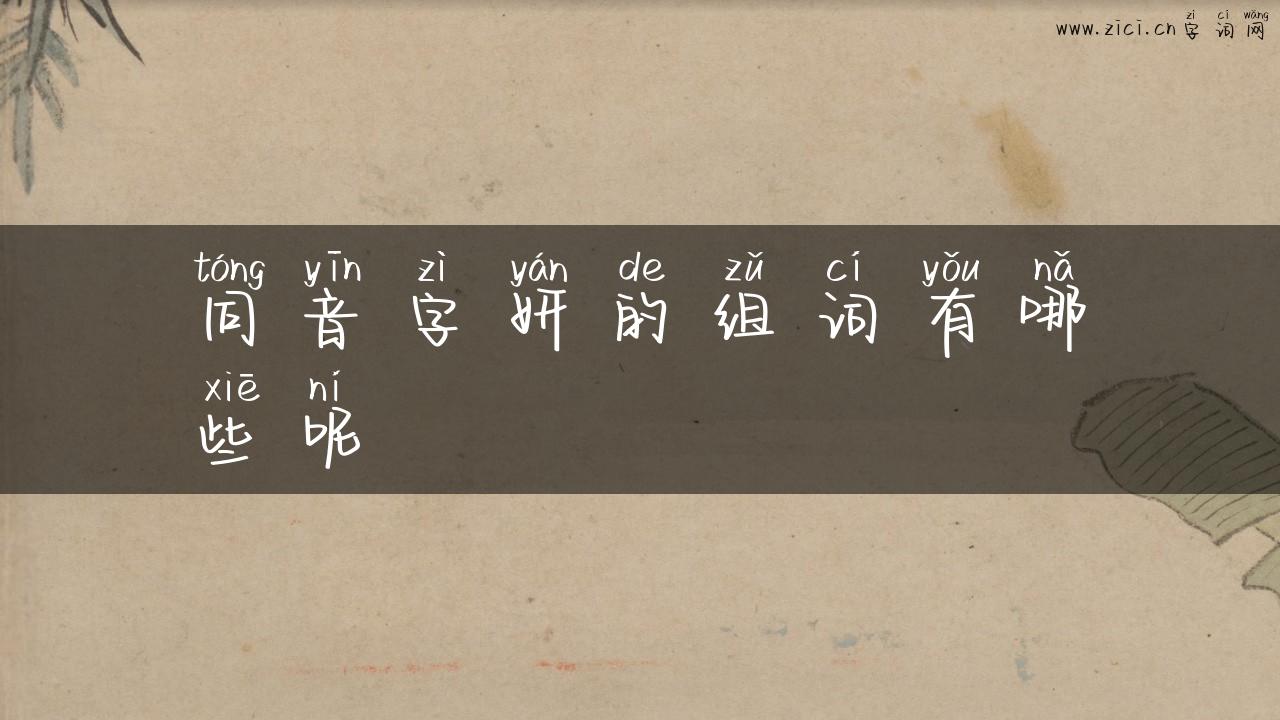 zì cí wǎng
www.zici.cn 字词网
tóng yīn zì yán de zǔ cí yǒu nǎ
同音字妍的组词有哪
xiē ní
些呢